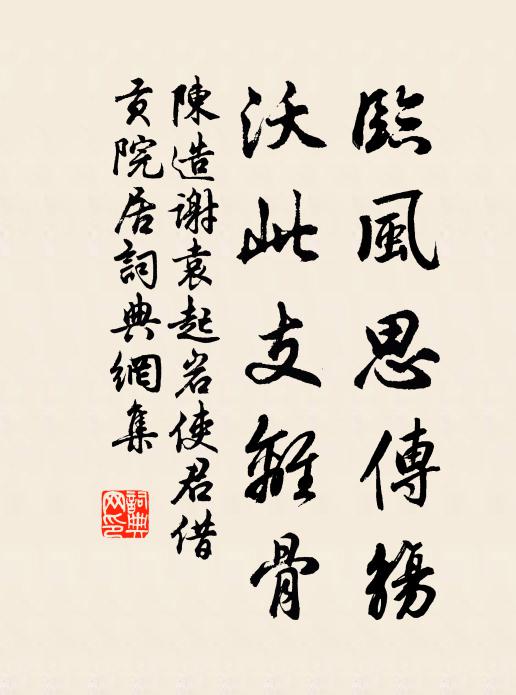 臨風思傳觴
沃此支離骨
陳造謝袁起岩使君借
貢院居詞典網集
詞典
网印